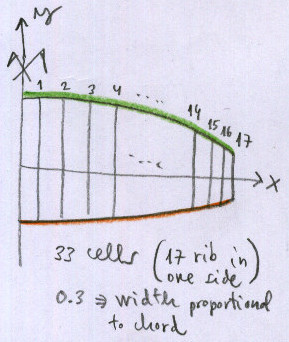 y
1 2 3 4 .... 14 15 16 17
...
x
33 cells (17 rib in
one side)
0.3 ⇒ width proportional
to chord